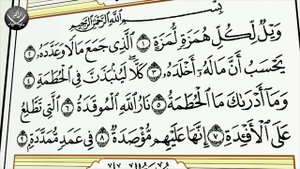 بِسْمِ ٱللَّهِ ٱلرَّحْمَٰنِ ٱلرَّحِيمِ
وَيْلٌ لِّكُلِّ هُمَزَةٍ لُّمَزَةٍ ١ ٱلَّذِى جَمَعَ مَالًا وَعَدَّدَهُۥ ٢
يَحْسَبُ أَنَّ مَالَهُۥٓ أَخْلَدَهُۥ ٣ كَلَّا لَيُنۢبَذَنَّ فِى ٱلْحُطَمَةِ ٤
وَمَآ أَدْرَىٰكَ مَا ٱلْحُطَمَةُ ٥ نَارُ ٱللَّهِ ٱلْمُوقَدَةُ ٦ ٱلَّتِى تَطَّلِعُ
عَلَى ٱلْأَفْـِٔدَةِ ٧ إِنَّهَا عَلَيْهِم مُّؤْصَدَةٌ ٨ فِى عَمَدٍ مُّمَدَّدَةٍۭ ٩